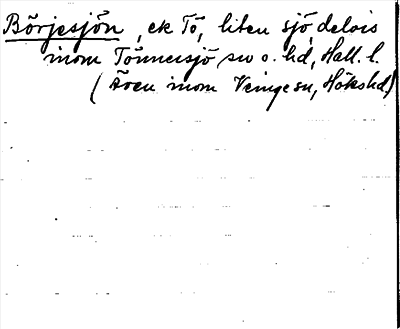 Börjesjön, ek Tö, liten sjö delvis
inom Tönnersjö sn o. hd, Hall. l.
(Även inom Veinge sn, Hökshd.)